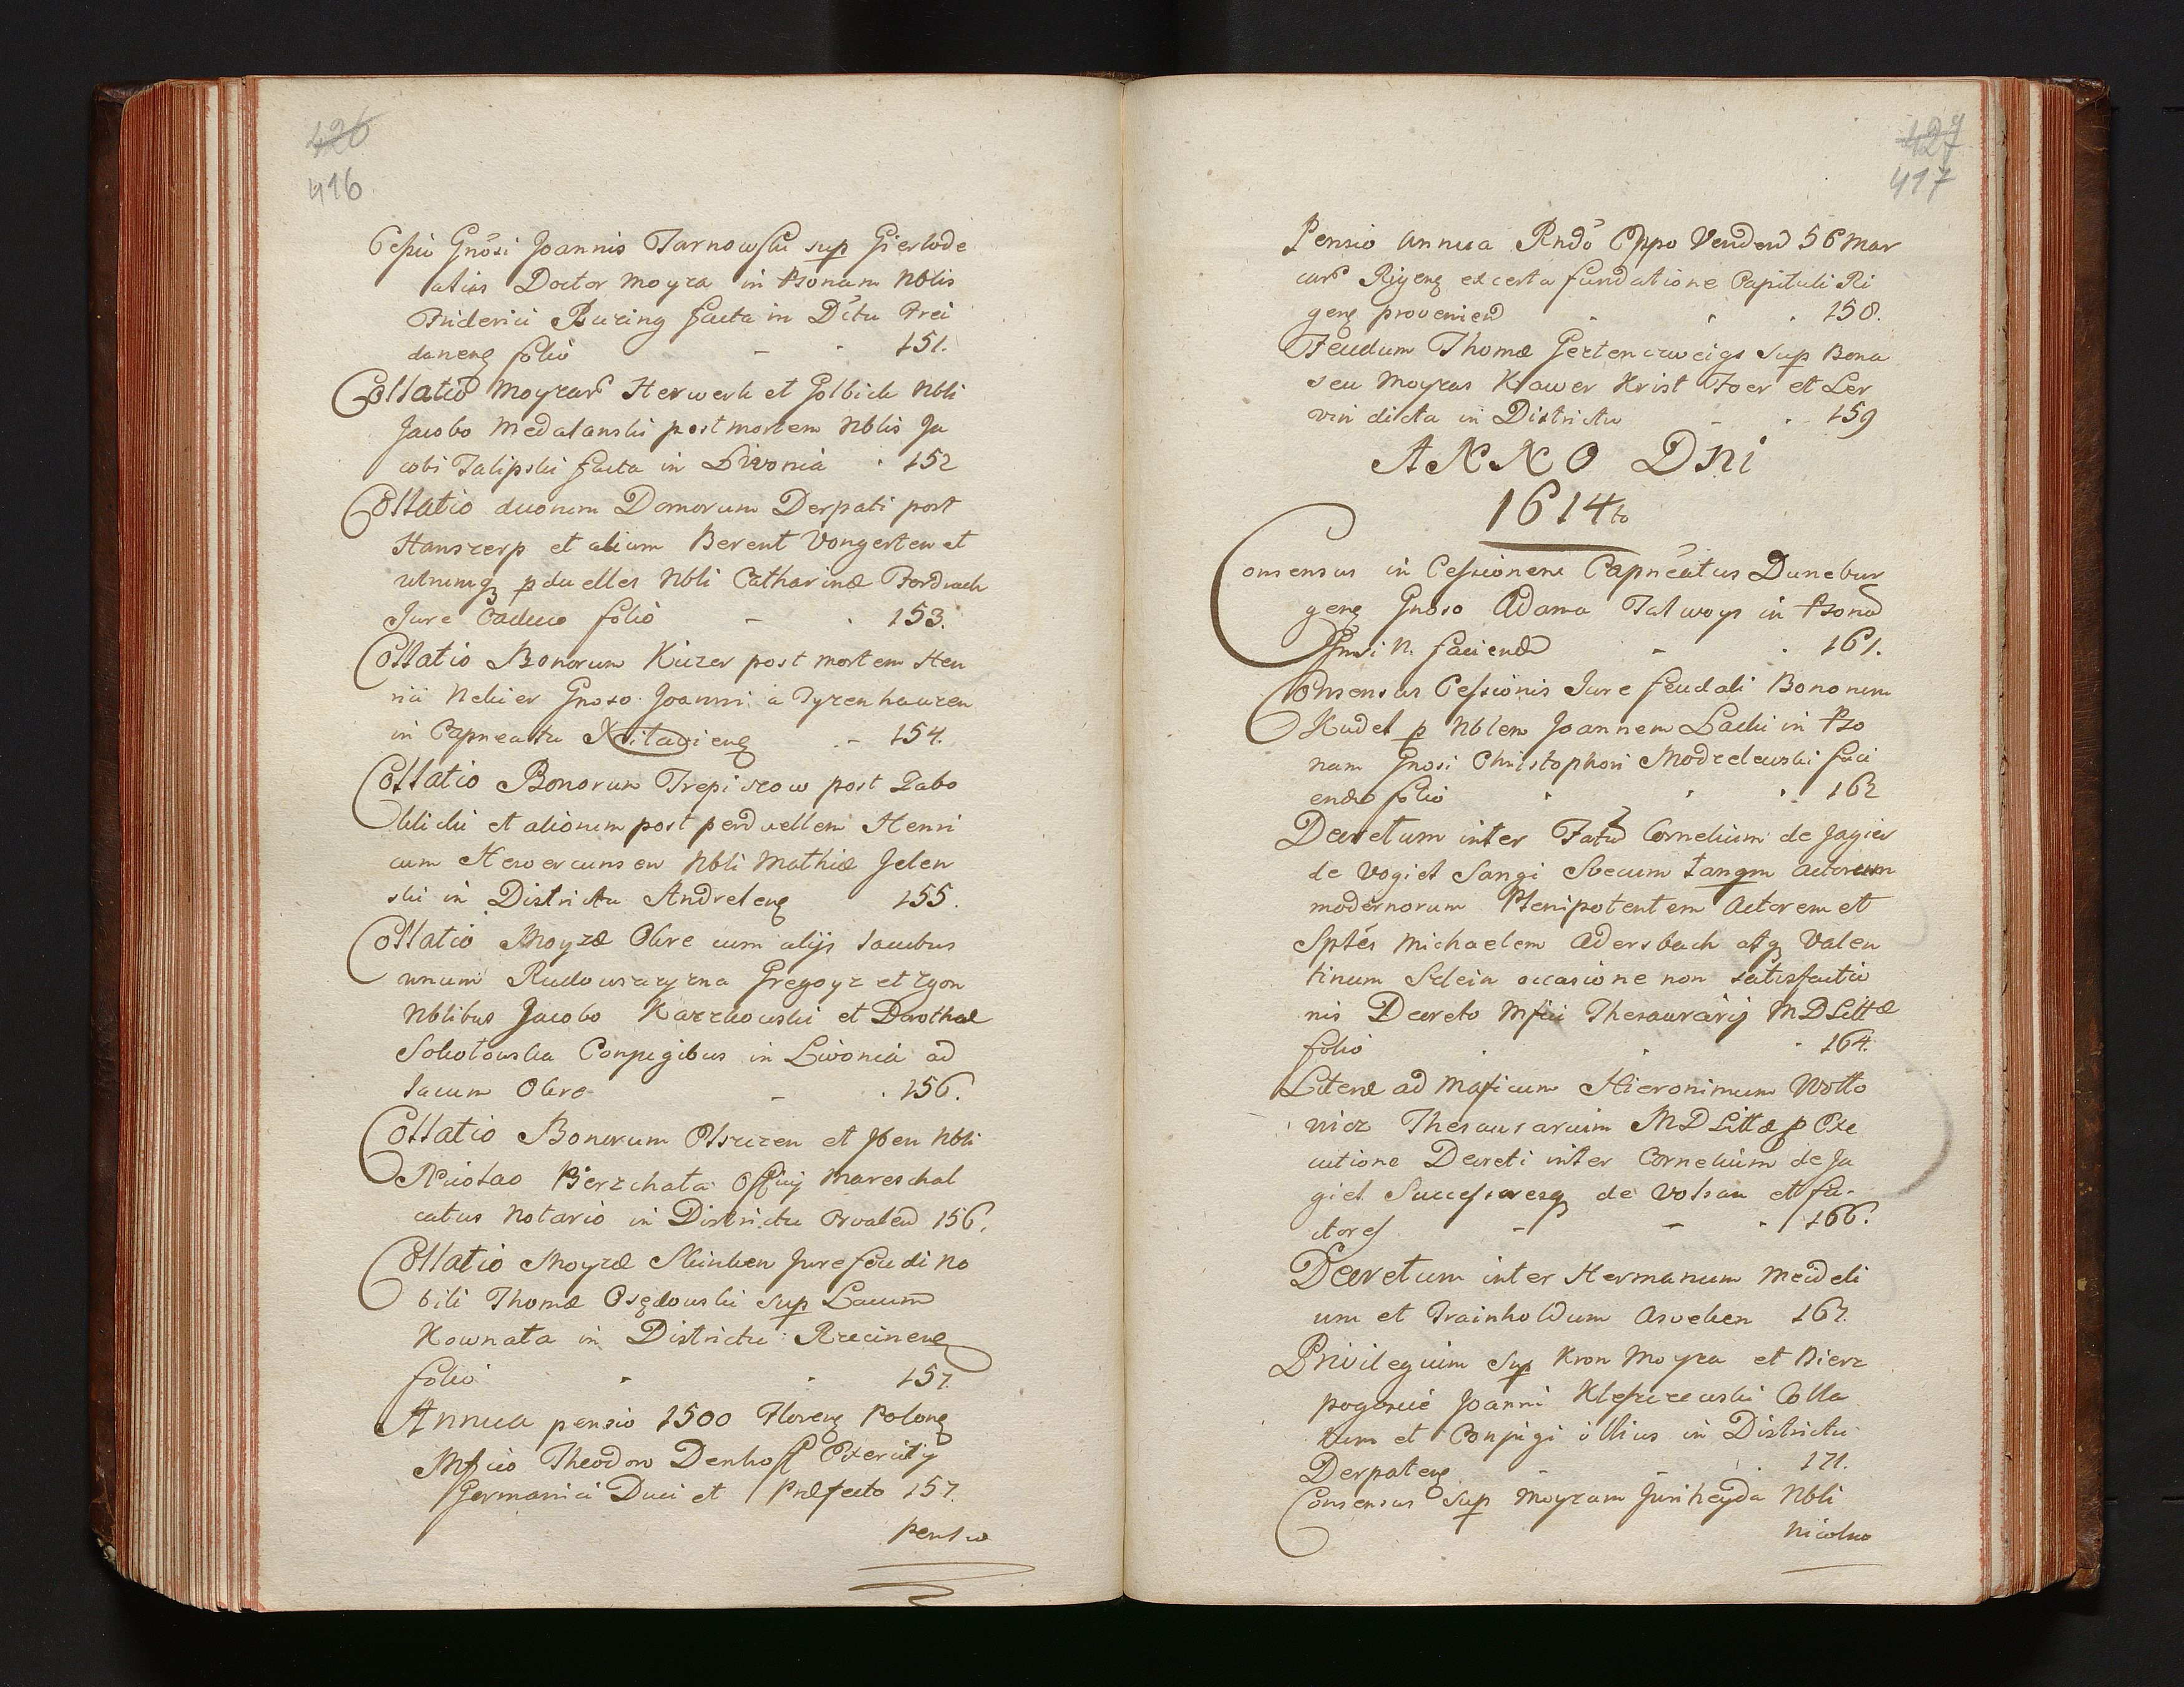 426
416
Cessio Gnosi Joannis Tarnowski sup Gierlode
alias Doctor Moyza in psonam Nblis
Friderici Buring facta in Dctu Trei
daneng folio - - 151.
Collatio Moyzar Herwerk et Golbick Nbli
Jacobo Medalanski post mortem Nblis Ja
cobi Talipski facta in Livonia . 152
Collatio duorum Domorum Derpati post
Hanszerp et alium Berent Vongerten et
utrumq pduelles Nbli Catharinæ Fordnach
Jure Caduco folio - . 153.
Collatio Bonorum Kiczer post mortem Hen
rici Nekier Gnoso Joanni a Tyzenhauzen
in Capneatu .- 154.
Collatio Bonorum Trepiszow post Zabo
klicki et aliorum post perduellem Henri
cum Nbli Mathiæ Jelen
ski in Districtu Andreleng 155.
Collatio Moyzæ Olwe cum alijs lacubus
unum Gregoyz et Zgon
Nblibus Jacobo Karzkowski et Dorothæ
Sokolowska Conjugibus in Livonia ad
lacum Olwe - . 156.
Collatio Bonorum Olszczen et Jven Nbli
Nicolao Bierzchata Officij Mareschal
catus Notario in Districtu 156.
Collatio Moyzæ Skinken Jure feudi No
bili Thomæ Osędowski sup Lacum
Kownata in Districtu Rzecineng
folio . . 157.
Annua pensio 1500 Floreng Polong
Mfico Theodoro Denhoff Exercity
Germanici Duci et Præfecto 157.
Pensio
427
417
Pensio annua Rndo Eppo Vendend 56 Mar
car Rigeng ex certa fundatione Capituli Ri
geng proveniend . . . 158.
Feudum Thomæ Gertenczweigs sup Bona
seu Moyzas Kawer Krist Joer et Ler
vin dicta in Districtu - . 159
ANNO DNI
1614to
Consensus in Cessionem Capneatus Dunebur
geng Gnoso Adama Talwoys in psona
Gnosi N. faciend - . 161.
Consensus Cessionis Jure feudali Bonorum
Kudel p Nblem Joannem Lacki in pso
nam Gnosi Christophori Modzelewski faci
enda folio . . . 162
Decretum inter Fatu Cornelium de Jagier
de Vogiet Sangi Svecum tanqm actorum
modernorum Plenipotentem Actorem et
Sptes Michaelem Adersbach atq Valen
tinum Sclein occasione non satisfactio
nis Decreto Mfici Thesaurarij MDLittæ
folio . . . 164.
Literæ ad Mgficum Hieronimum Wollo
wicz Thesaurarium MDLittæ p Exe
cutione Decreti inter Cornelium de Ja
giel Successoresq de Volsan et fa-
ctores - - . 166.
Decretum inter Hermanum Meideli
um et Trainholdum Asveken 167.
Privilegium sup Kron Moyza et Bierz
pogorcie Joanni Kleszczewski Colla
tum et Conjugi illius in Districtu
Derpateng - - . 171.
Consensus sup Moyzam Juriheyda Nbli
Nicolao